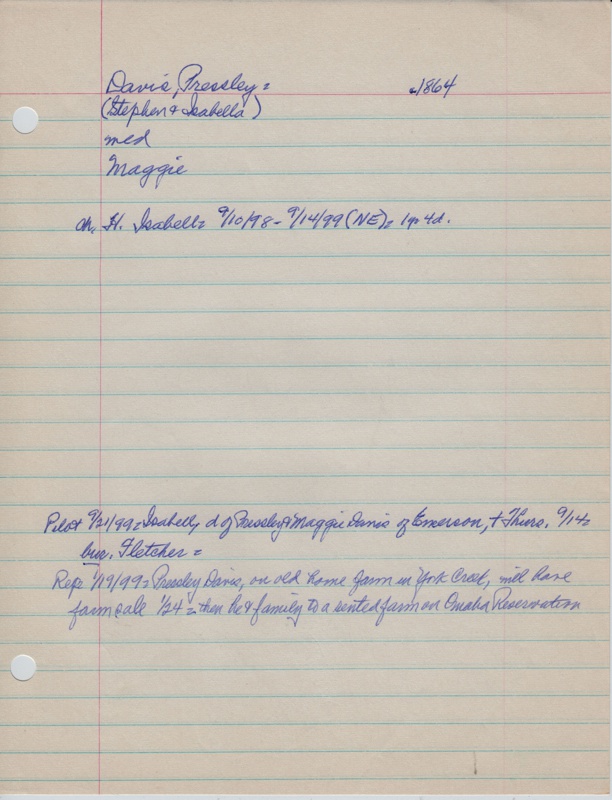 Davis, Pressley = c1864
(Stephen & Isabella)
med
Maggie
ch. H. Isabell = 9/10/98 - 9/14/99 (NE) = 1y 4d.
Pilot 9/21/99 = Isabell, d of Pressley & Maggie Davis of Emerson, + Thurs. 9/14 =
bur. Fletcher =
Rep: 1/19/99 = Pressley Davis, on old home farm in York Creek, will have
farm sale 1/24 = then he & family to a rented farm on Omaha Reservation